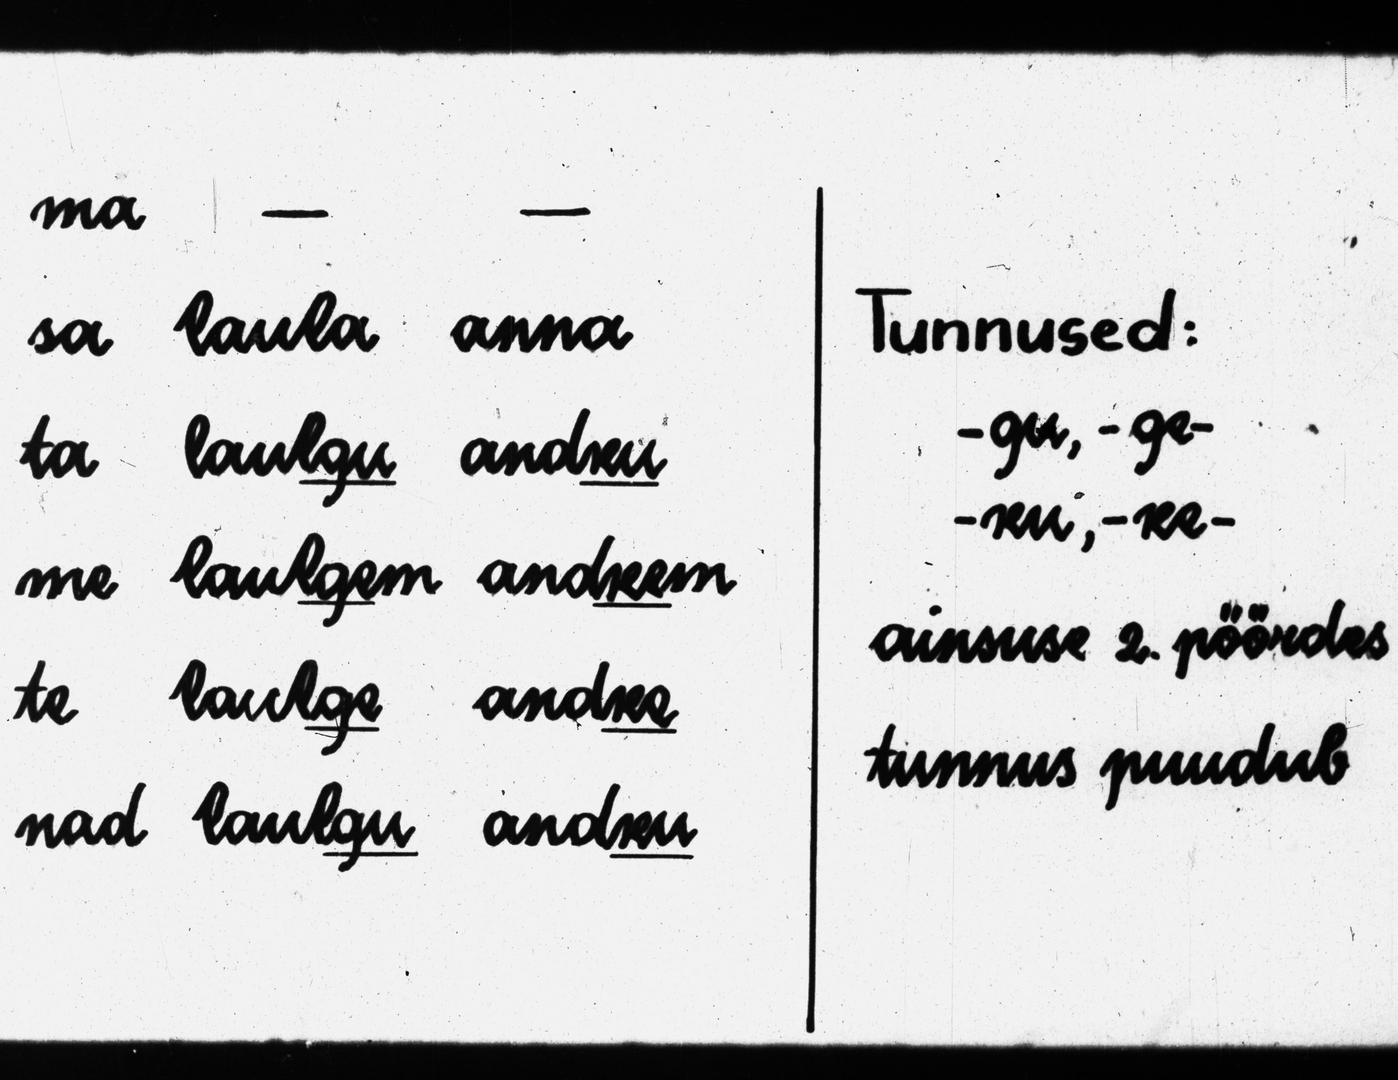 ma — —
sa laula anna
ta laulgu andku
me laulgem andkem
te laulge andke
nad laulgu andku
Tunnused:
-gu, -ge-
-ku, -ke-
ainsuse 2. pöördes
tunnus puudub